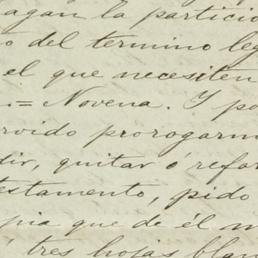 agan la particio
o del termino leg
el que necesiten
.= Novena. Y po
rvido prorogarm
dir, quitar ó refor
estamento, pido
pia que de él n
tres hojas blan